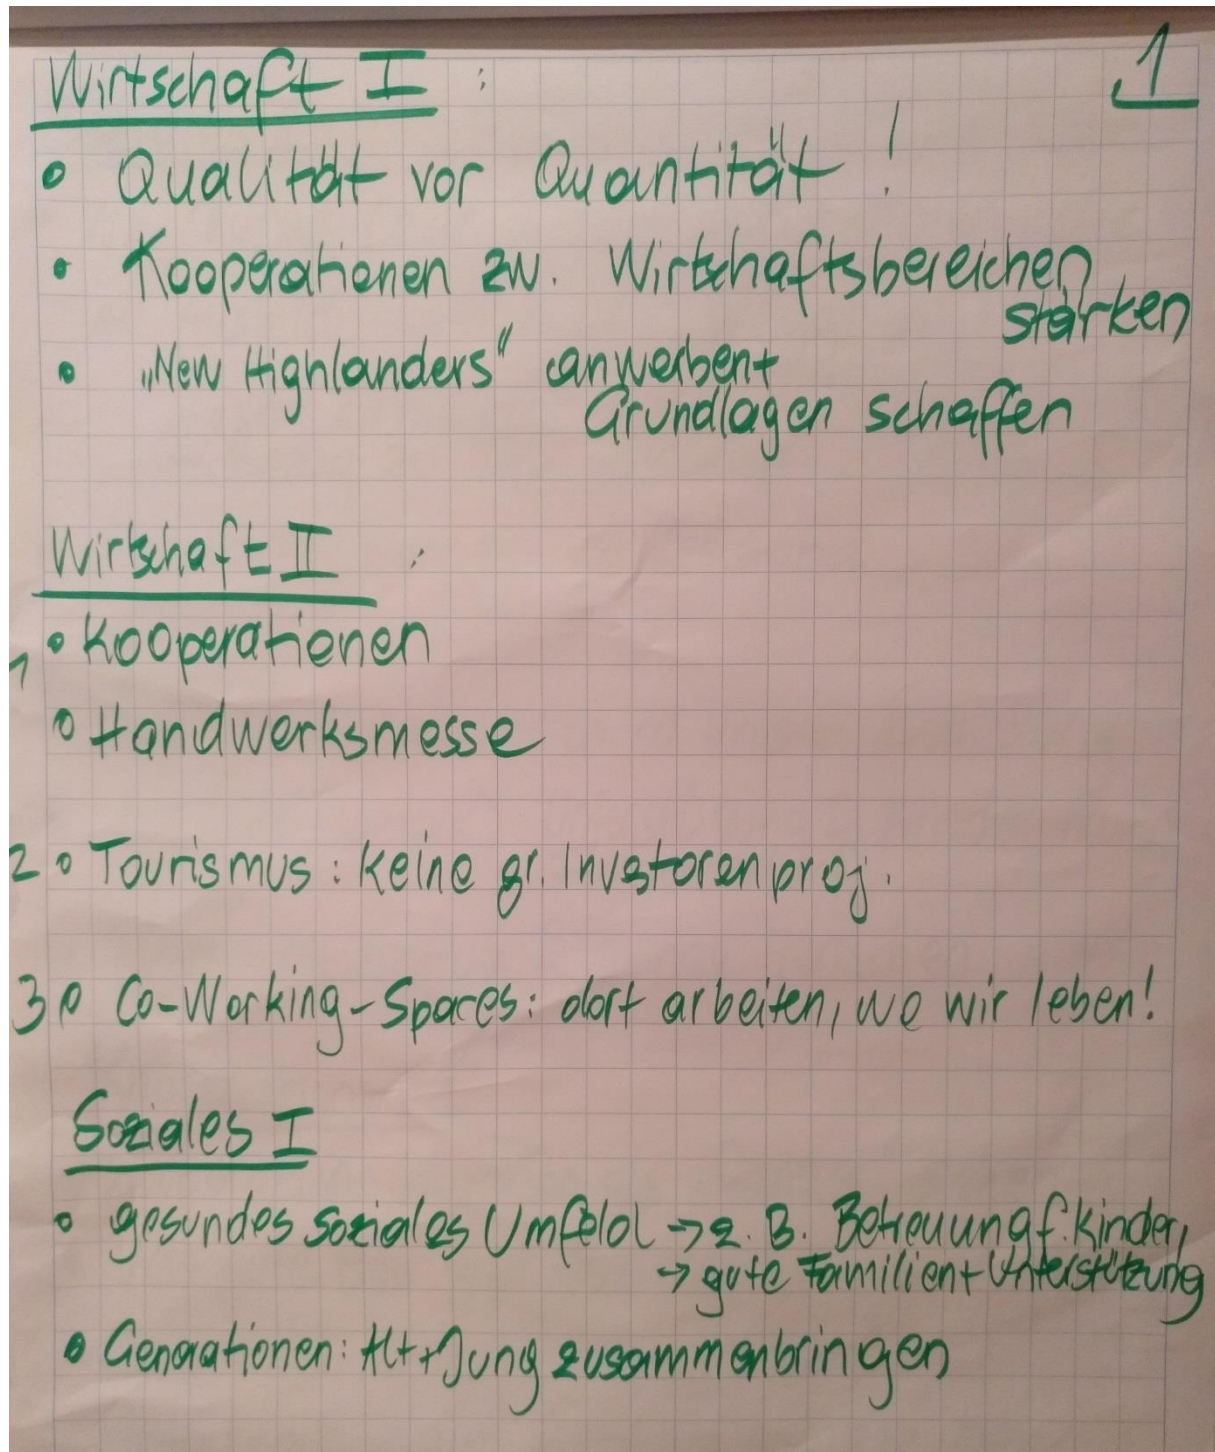 1
Wirtschaft I :
• Qualität vor Quantität !
• Kooperationen zw. Wirtschaftsbereichen
stärken
• „New Highlanders" anwerben +
Grundlagen schaffen
Wirtschaft II :
1 • Kooperationen
• Handwerksmesse
2 • Tourismus : keine gr. Investorenproj.
3 • Co-Working-Spaces : dort arbeiten, wo wir leben!
Soziales I
• gesundes soziales Umfeld → z. B. Betreuung f. Kinder,
→ gute Familien + Unterstützung
• Generationen : Alt + Jung zusammenbringen